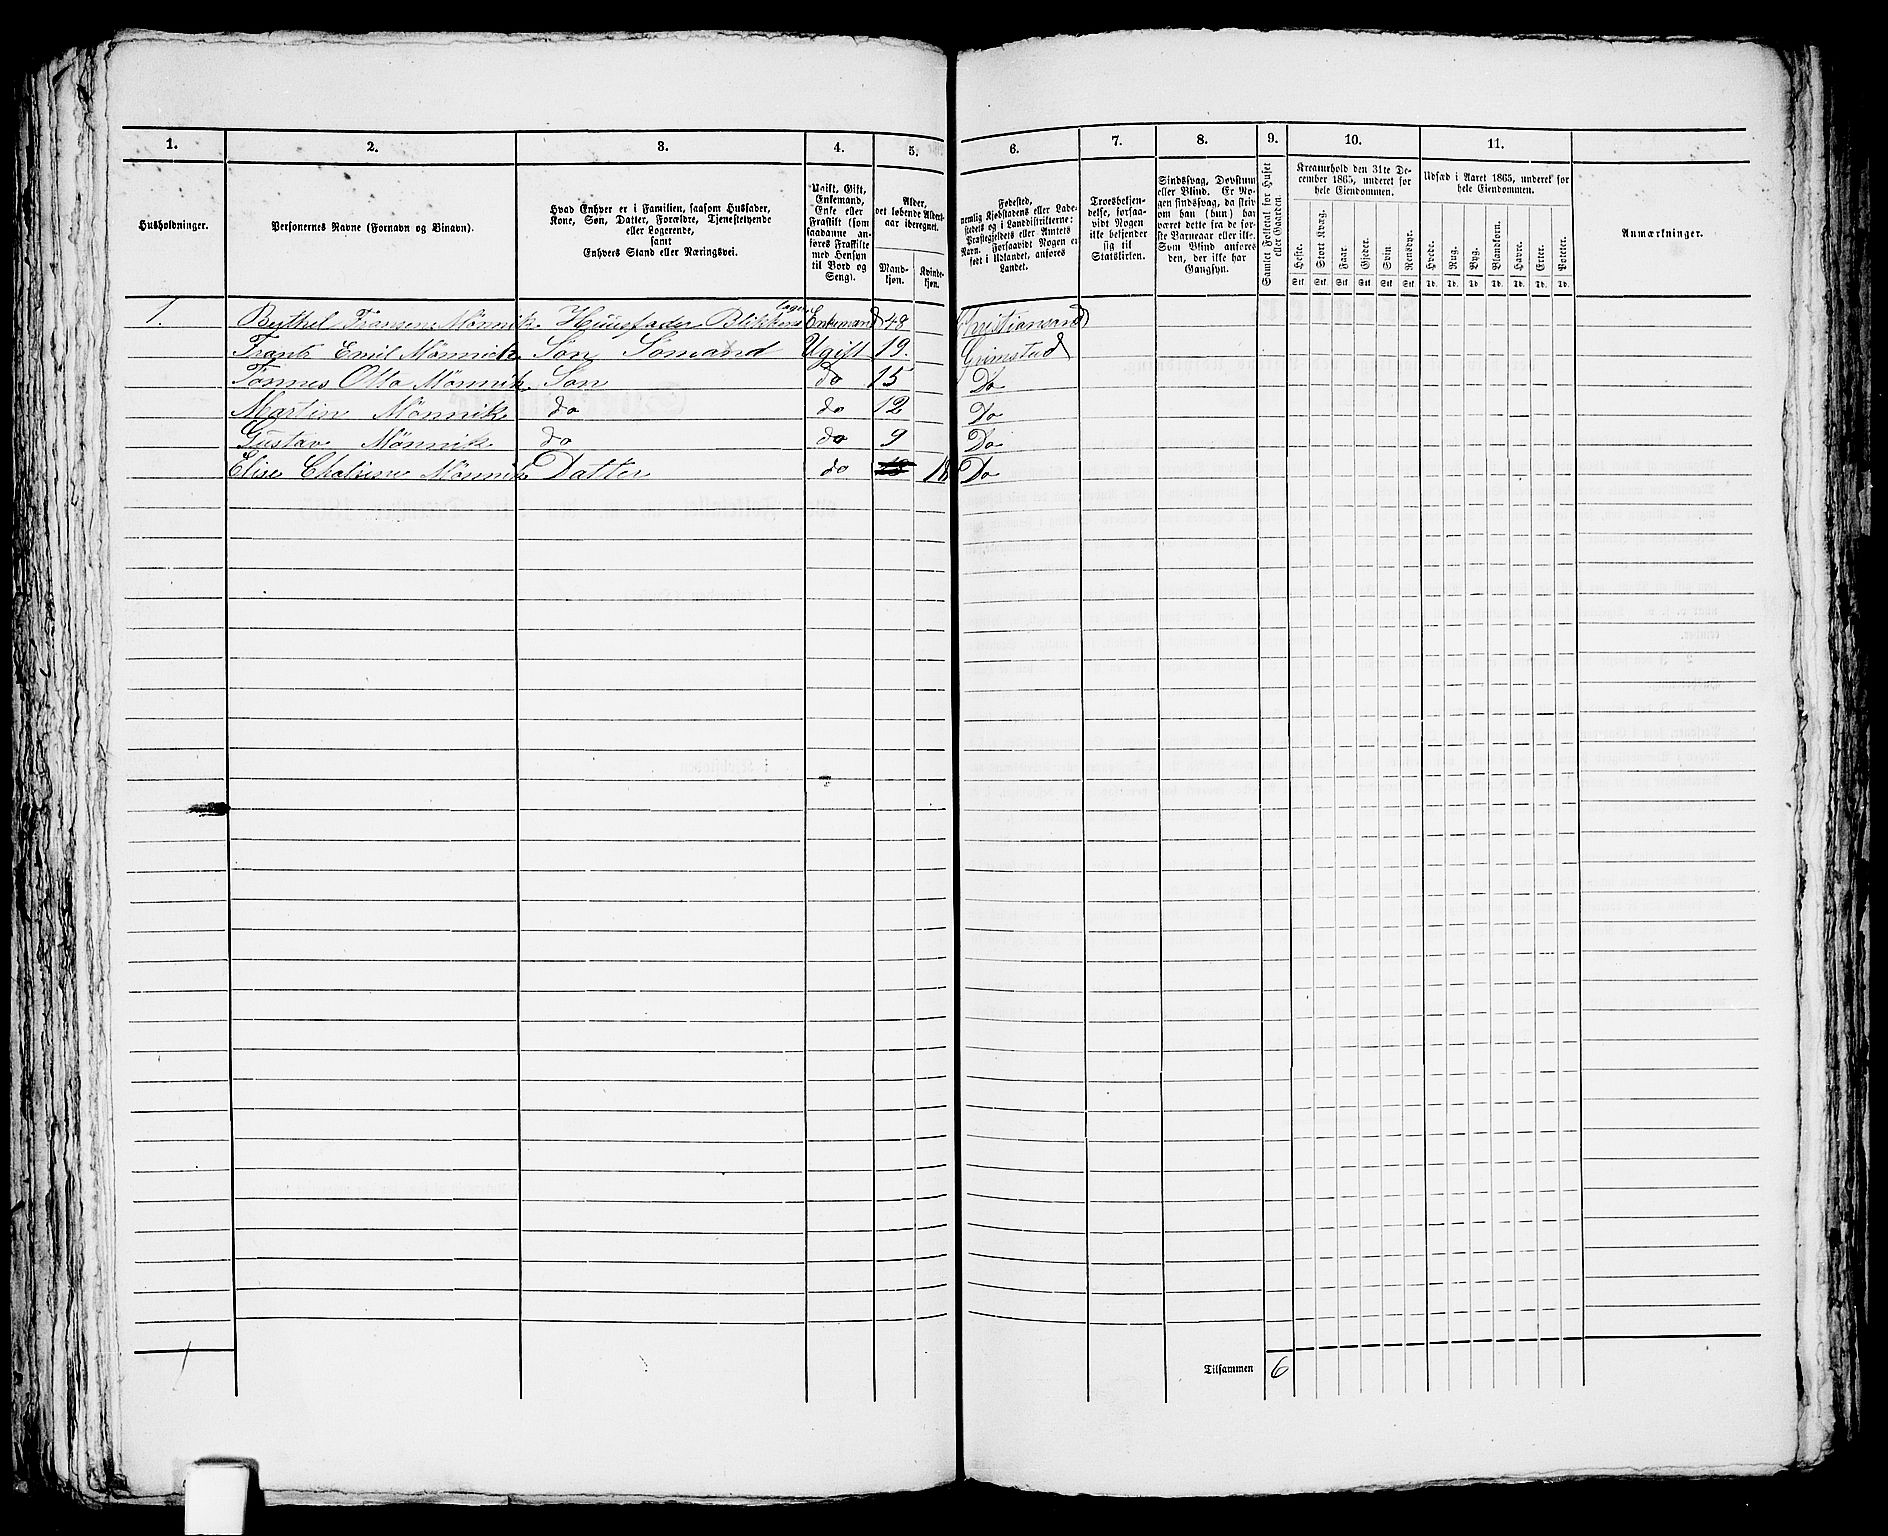 1. 2. 3. 4. 5. 6. 7. 8. 9. 10. 11.
Husholdninger.
Personernes Navne (Fornavn og Binavn).
Hvad Enhver er i Familien, saasom Husfader,
Kone, Søn, Datter, Forældre, Tjenestetyende
eller Logerende,
samt
Enhvers Stand eller Næringsvei.
Ugift, Gift,
Enkemand,
Enke eller
Fraskilt (som
saadanne an-
føres Fraskilte
med Hensyn
til Bord og
Seng).
Alder,
det løbende Alders-
aar iberegnet.
Mand-
kjøn.
Kvinde-
kjøn.
Fødested,
nemlig Kjøbstadens eller Lade-
stedets og i Landdistrikterne:
Præstegjeldets eller Amtets
Navn. Forsaavidt Nogen er
født i Udlandet, anføres
Landet.
Troesbekjen-
delse, forsaa-
vidt Nogen
ikke bekjender
sig til
Statskirken.
Sindssvag, Døvstum
eller Blind. Er No-
gen sindssvag, da skriv
om han (hun) har
været dette fra de før-
ste Barneaar eller ikke.
Som Blind anføres
den, der ikke har
Gangsyn.
Samlet Folketal for Huset
eller Gaarden.
Kreaturhold den 31te De-
cember 1865, underet for
hele Eiendommen.
Heste. Stort Kvæg. Faar. Gjeder. Svin Rensdyr.
Stk Stk Stk Stk Stk Stk
Udsæd i Aaret 1865, underet for
hele Eiendommen.
Hvede. Rug. Byg. Blandkorn. Havre. Erter. Poteter.
Td. Td. Td. Td. Td. Td. Td.
Anmærkninger.
1. Berthel Fransen Mönnik Huusfader Blikkenslager Enkemand 48 Christiansand
Frants Emil Mönnick Søn Sømand Ugift 19. Grimstad
Tønnes Otto Mönnik Søn do 15 Do
Martin Mönnik do do 12 Do
Gustav Mönnik do do 9 Do
Elise Mönnik Datter do 18 Do
1
Tilsammen 6